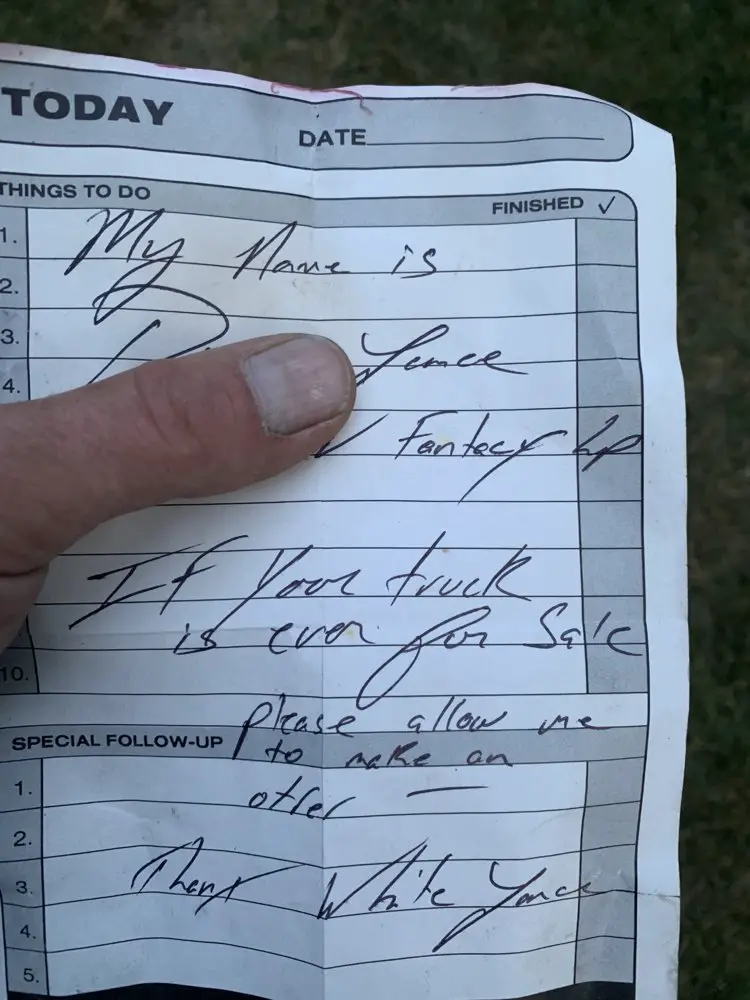 TODAY
DATE
THINGS TO DO
FINISHED ✓
1.
My Name is
2.
3.
Yance
4.
Fantacy Lp
If Your truck
is ever for Sale
10.
please allow me
SPECIAL FOLLOW-UP
to make an
1.
offer —
2.
3.
Thanx White Yance
4.
5.